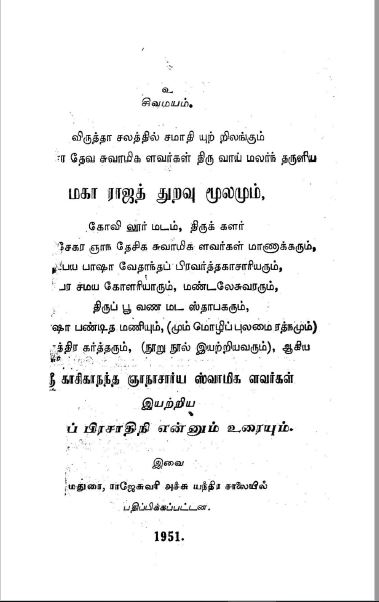 உ
சிவமயம்.
விருத்தா சலத்தில் சமாதி யுற் றிலங்கும்
ர தேவ சுவாமிக ளவர்கள் திரு வாய் மலர்ந் தருளிய
மகா ராஜத் துறவு மூலமும்,
கோவி லூர் மடம், திருக் களர்
சேகர ஞான தேசிக சுவாமிக ளவர்கள் மாணாக்கரும்,
பய பாஷா வேதாந்தப் பிரவர்த்தகாசாரியரும்,
பர சமய கோளரியாரும், மண்டலேசுவரரும்,
திருப் பூ வண மட ஸ்தாபகரும்,
ஷா பண்டித மணியும், (மும் மொழிப் புலமை ரத்நமும்)
த்திர கர்த்தரும், (நூறு நூல் இயற்றியவரும்), ஆகிய
ஸ்ரீ காசிகாநந்த ஞாநாசார்ய ஸ்வாமிக ளவர்கள்
இயற்றிய
ப் பிரசாதிநி என்னும் உரையும்.
இவை
மதுரை, ராஜேசுவரி அச்சு யந்திர சாலையில்
பதிப்பிக்கப்பட்டன.
1951.